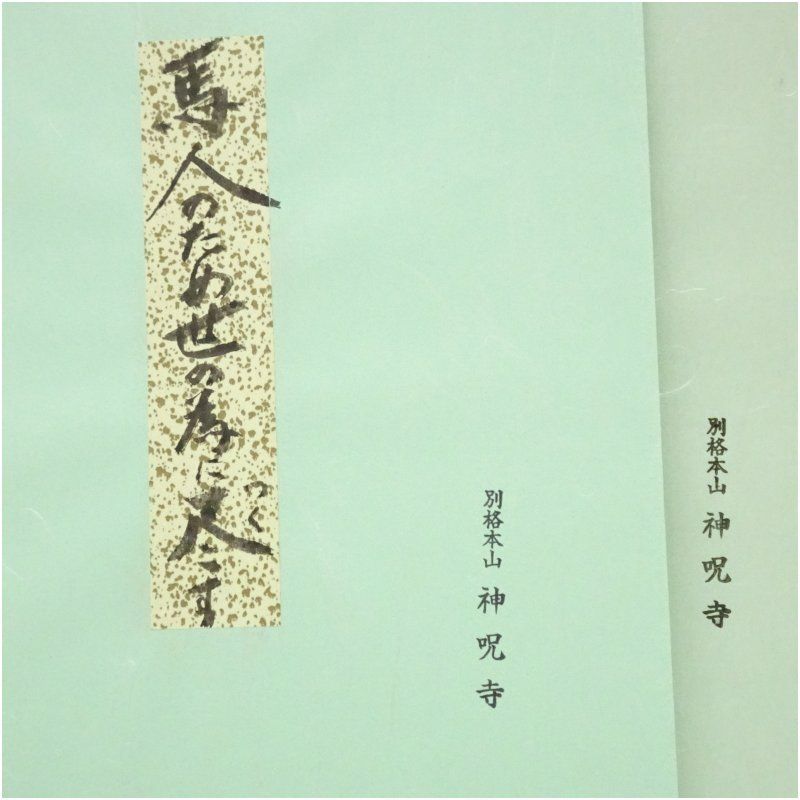 馬 人のため世の為に尽す
つく
別格本山 神呪寺
別格本山 神呪寺